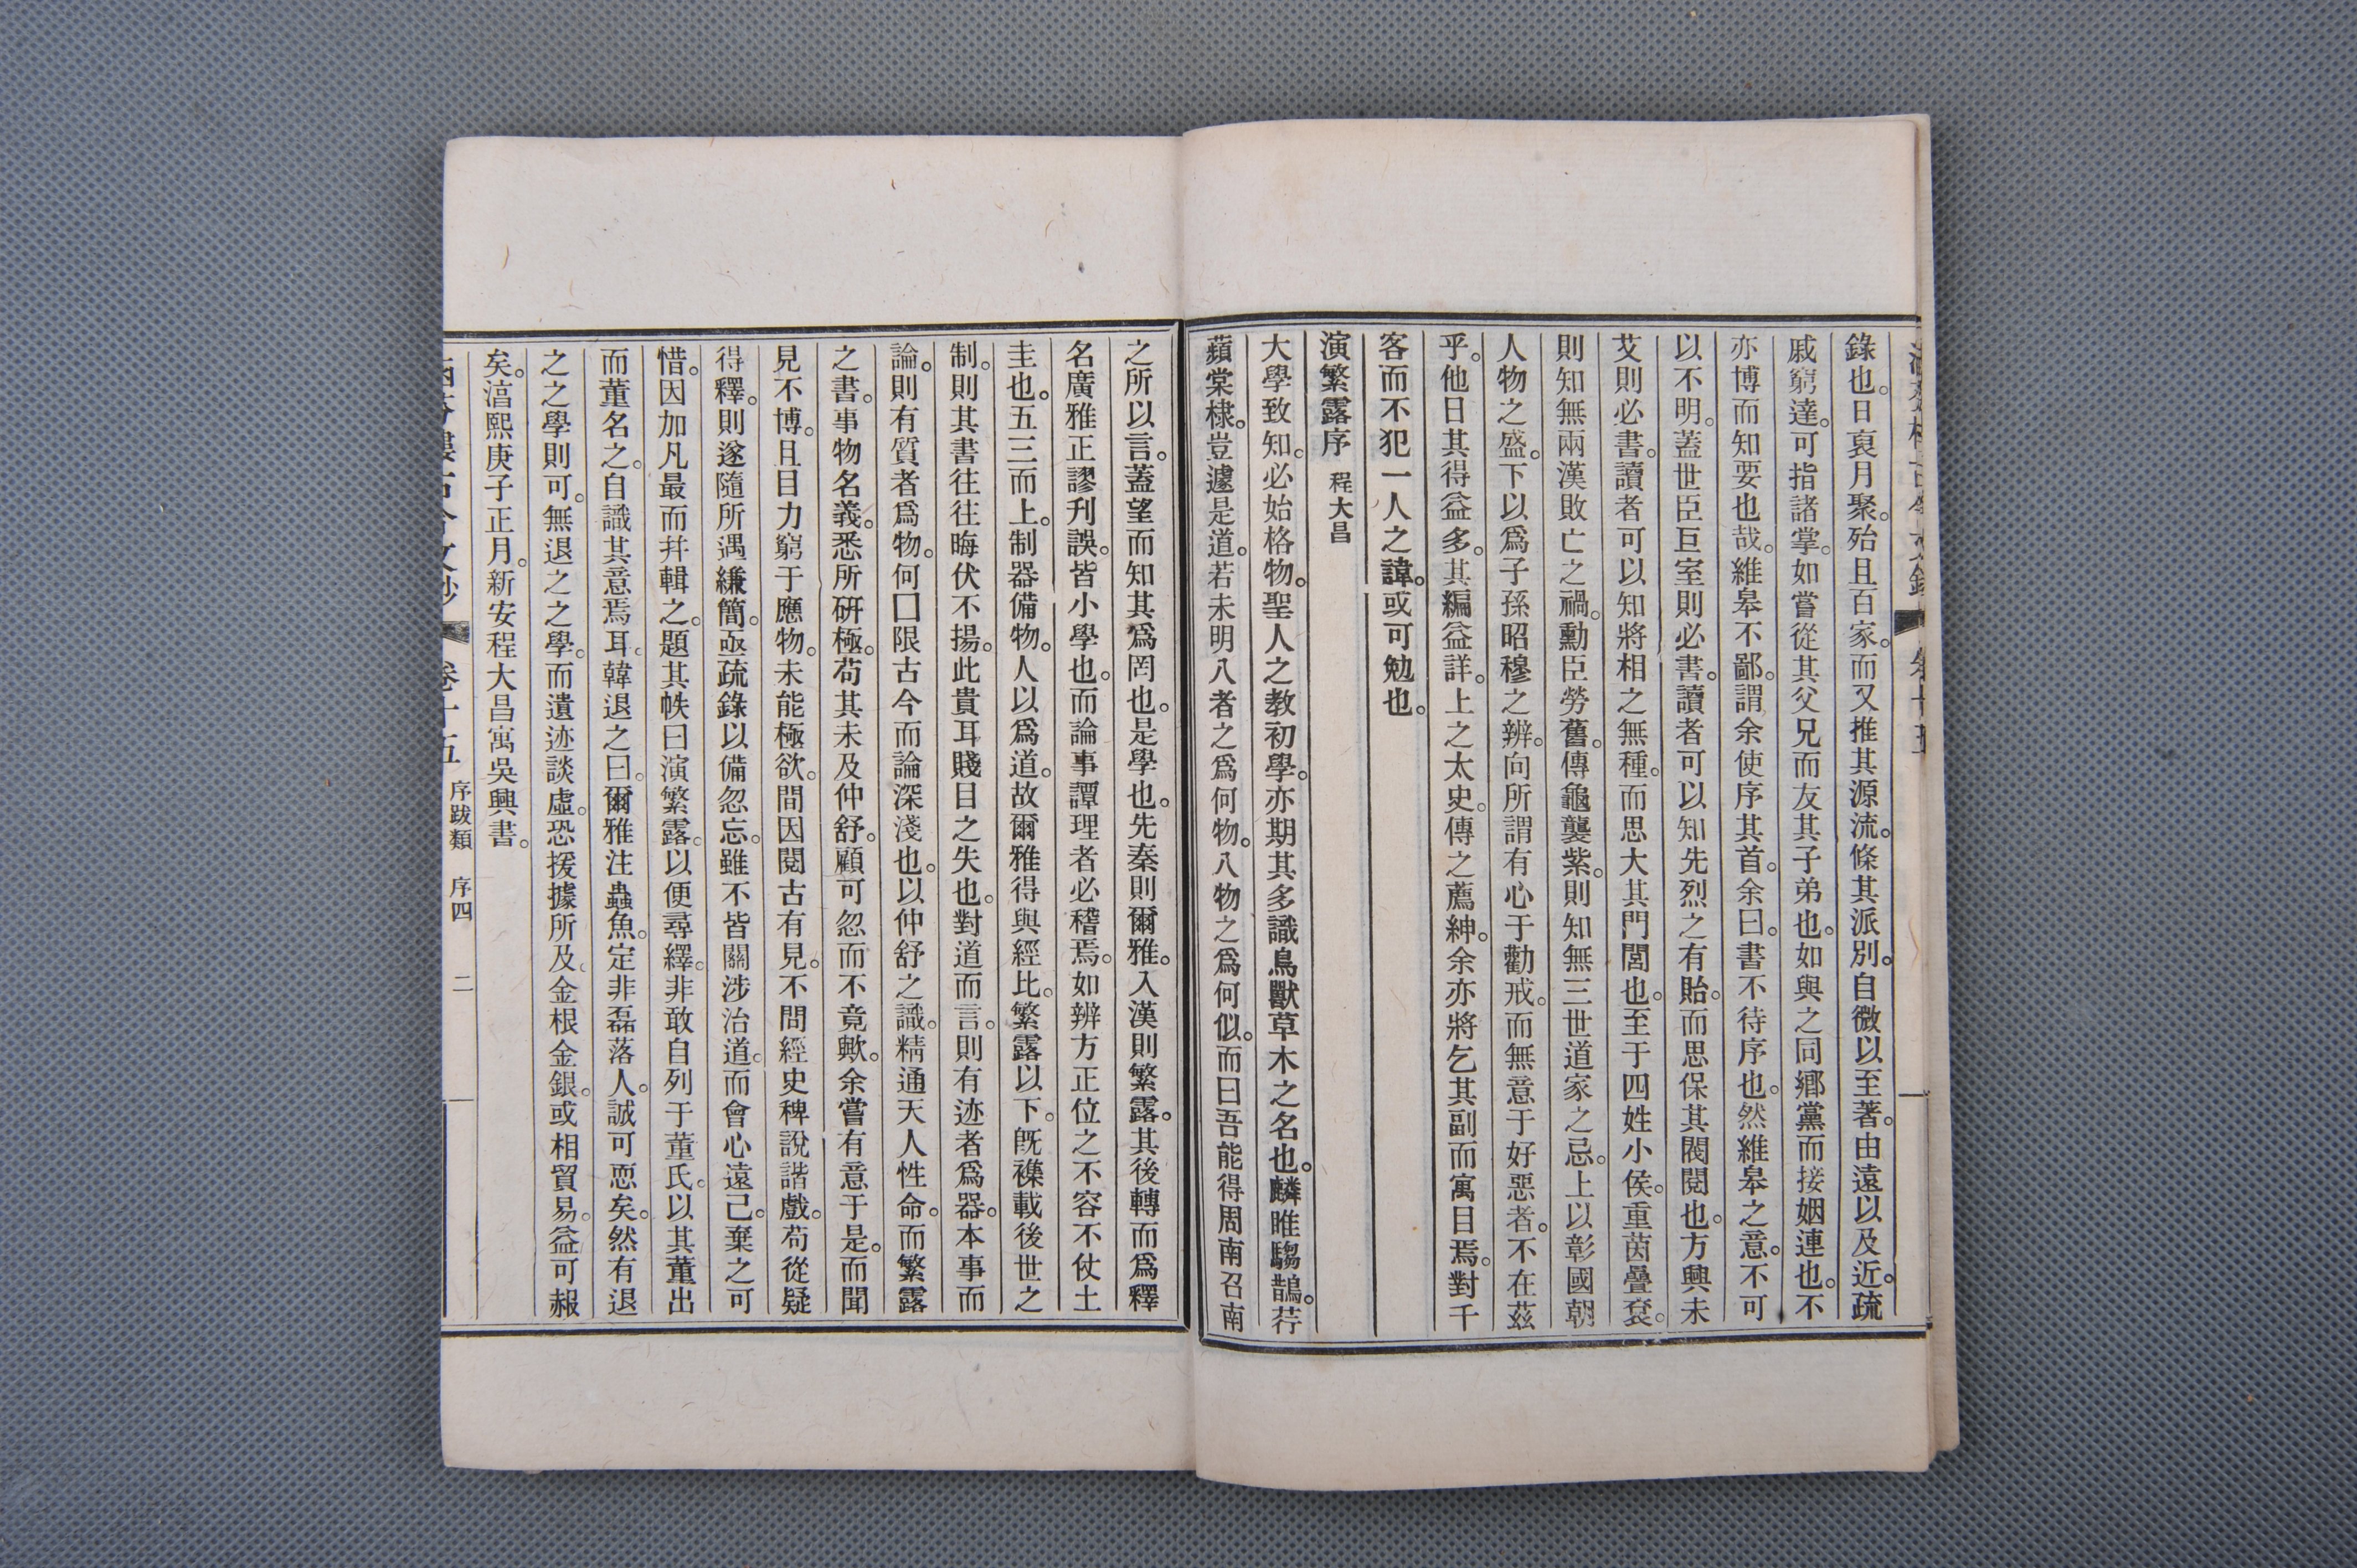 錄也。日裒月聚。殆且百家。而又推其源流。條其派別。自微以至著。由遠以及近。疏
戚窮達。可指諸掌。如嘗從其父兄而友其子弟也。如與之同鄉黨而接姻連也。不
亦博而知要也哉。維皋不鄙。謂余使序其首。余曰。書不待序也。然維皋之意。不可
以不明。蓋世臣巨室則必書。讀者可以知先烈之有貽。而思保其閥閱也。方興未
艾則必書。讀者可以知將相之無種。而思大其門閭也。至于四姓小侯。重茵疊袞。
則知無兩漢敗亡之禍。勳臣勞舊。傳龜襲紫。則知無三世道家之忌。上以彰國朝
人物之盛。下以爲子孫昭穆之辨。向所謂有心于勸戒。而無意于好惡者。不在茲
乎。他日其得益多。其編益詳。上之太史。傳之薦紳。余亦將乞其副而寓目焉。對千
客而不犯一人之諱。或可勉也。
演繁露序 程大昌
大學致知。必始格物。聖人之教初學。亦期其多識鳥獸草木之名也。麟雎騶鵲。荇
蘋棠棣。豈遽是道。若未明八者之爲何物。八物之爲何似。而曰吾能得周南召南
之所以言。蓋望而知其爲罔也。是學也。先秦則爾雅。入漢則繁露。其後轉而爲釋
名廣雅正謬刊誤。皆小學也。而論事譚理者必稽焉。如辨方正位之不容不仗土
圭也。五三而上。制器備物。人以爲道。故爾雅得與經比。繁露以下。旣襍載後世之
制。則其書往往晦伏不揚。此貴耳賤目之失也。對道而言。則有迹者爲器。本事而
論。則有質者爲物。何囗限古今而論深淺也。以仲舒之識。精通天人性命。而繁露
之書。事物名義。悉所研極。苟其未及仲舒。顧可忽而不竟歟。余嘗有意于是。而聞
見不博。且目力窮于應物。未能極欲。間因閱古有見。不問經史稗說諧戲。苟從疑
得釋。則遂隨所遇縑簡。亟疏錄以備忽忘。雖不皆關涉治道。而會心遠己。棄之可
惜。因加凡最而幷輯之。題其帙曰演繁露。以便尋繹。非敢自列于董氏。以其董出
而董名之。自識其意焉耳。韓退之曰。爾雅注蟲魚。定非磊落人。誠可恧矣。然有退
之之學則可。無退之之學。而遺迹談虛。恐援據所及。金根金銀。或相貿易。益可赧
矣。湻熙庚子正月。新安程大昌寓吳興書。
卷十五 序跋類 序四 二